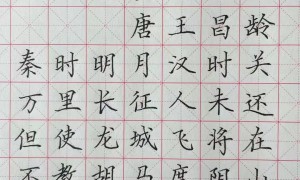 唐王昌龄
秦时明月汉时关
万里长征人未还
但使龙城飞将在
不教胡马度阴山